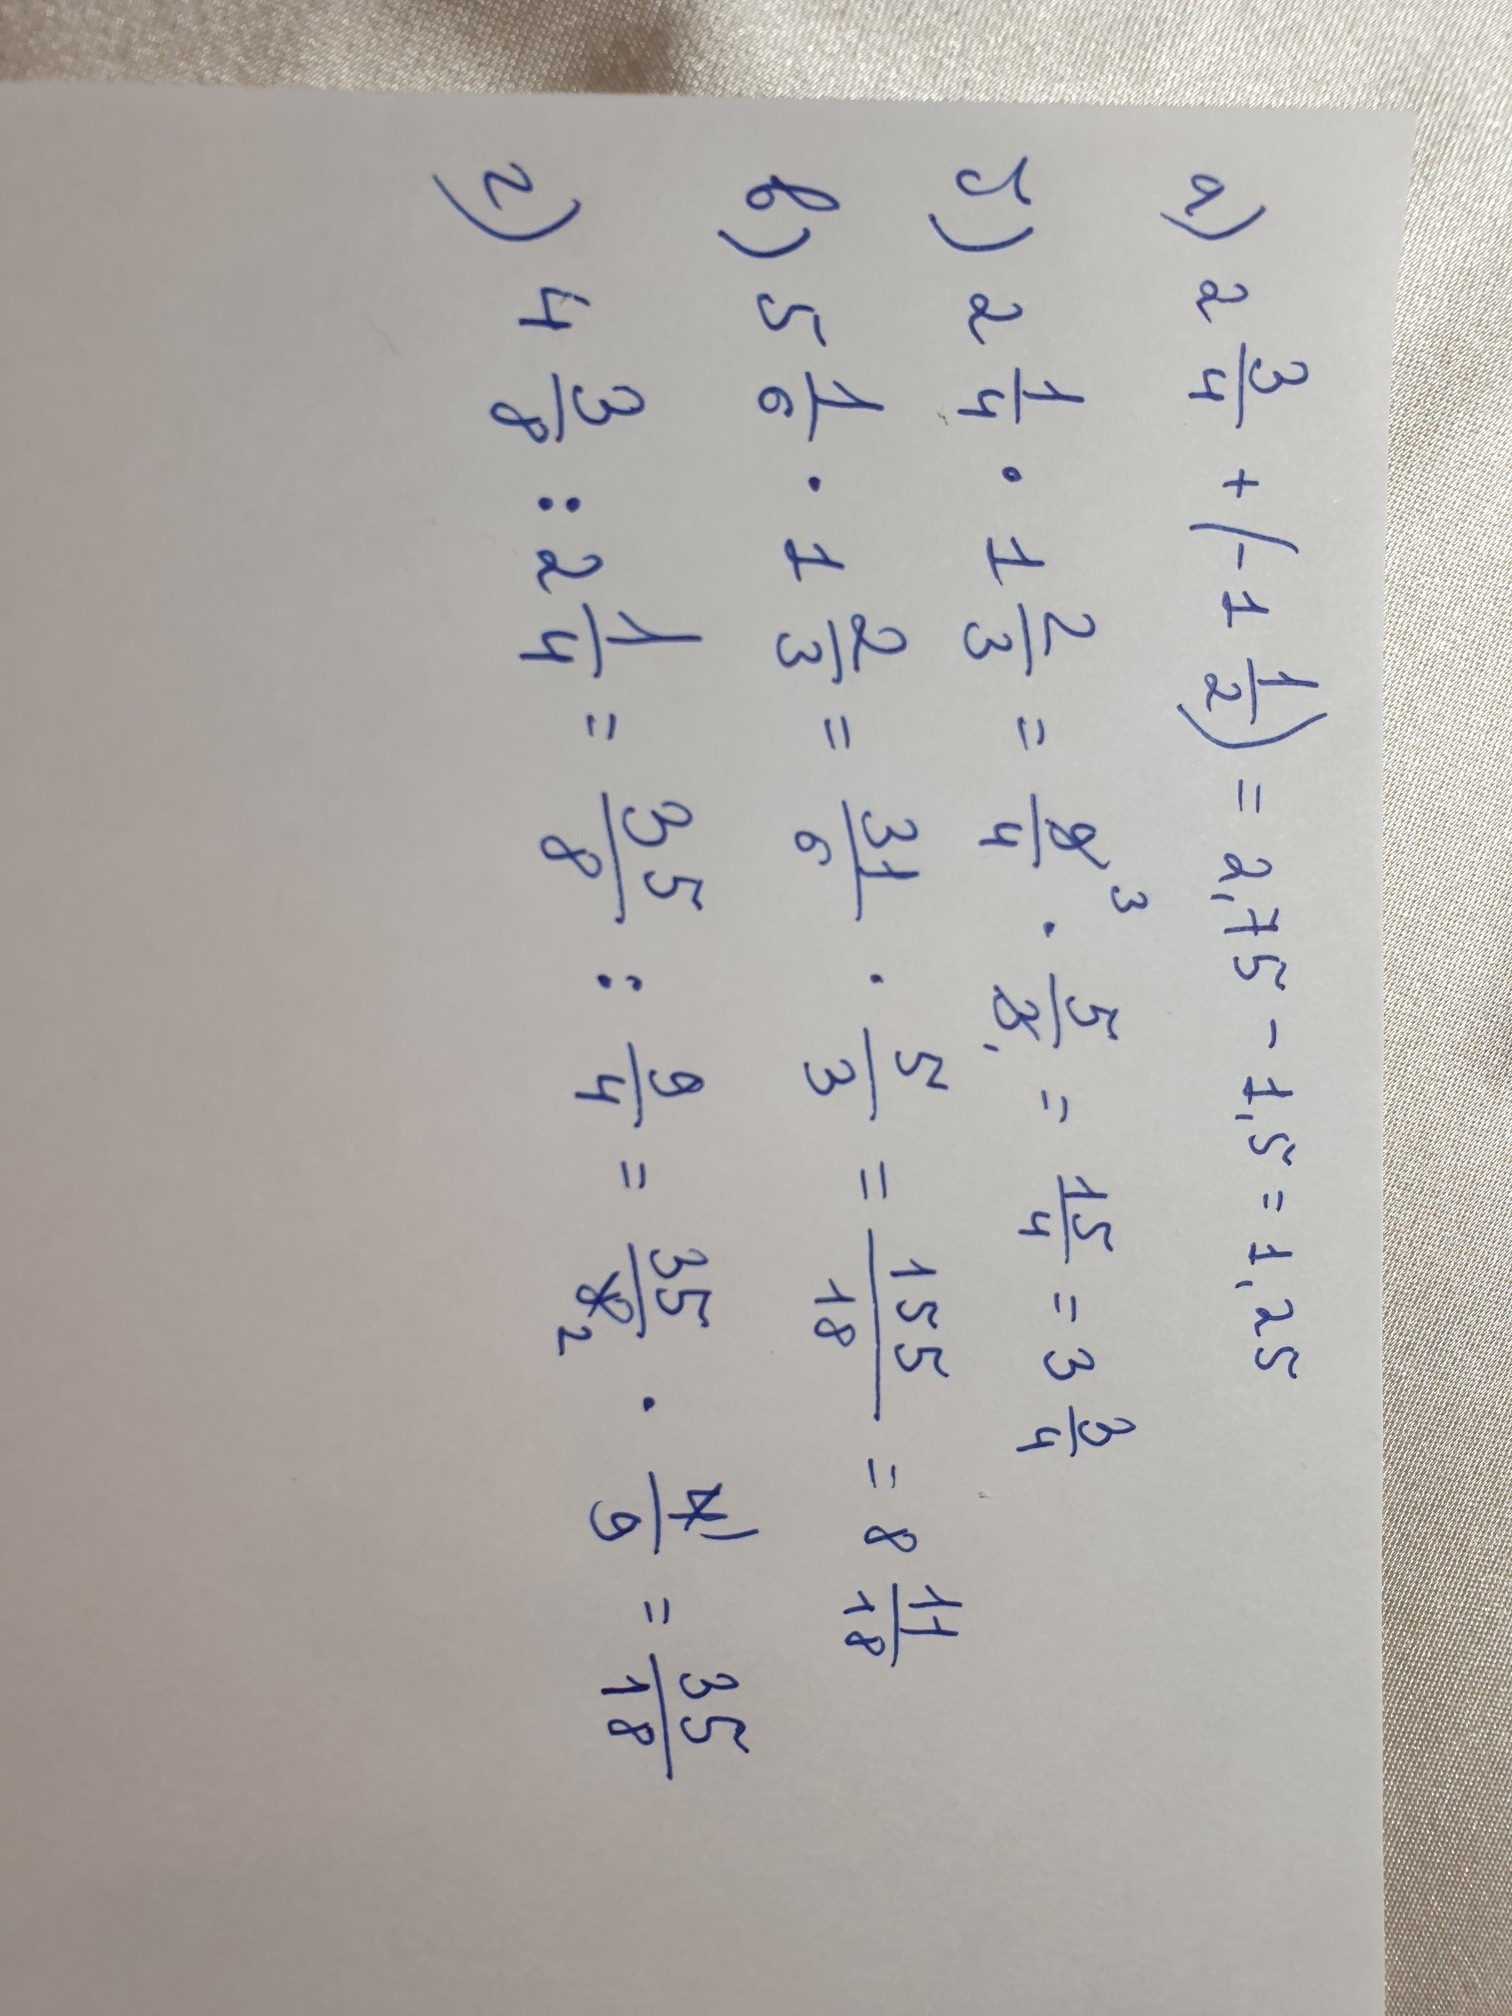 а) 2 3/4 + (-1 1/2) = 2,75 - 1,5 = 1,25
б) 2 1/4 · 1 2/3 = 9³/4 · 5/3₁ = 15/4 = 3 3/4
в) 5 1/6 · 1 2/3 = 31/6 · 5/3 = 155/18 = 8 11/18
г) 4 3/8 : 2 1/4 = 35/8 : 9/4 = 35/8₂ · 4¹/9 = 35/18